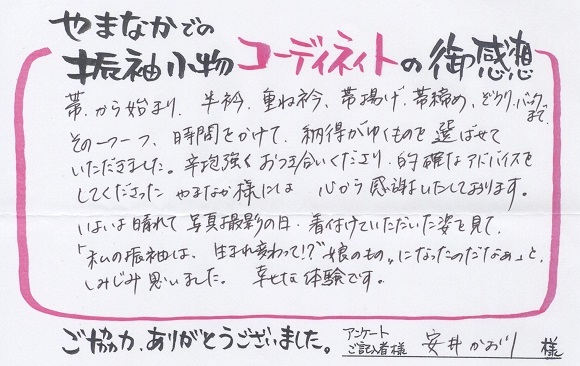 やまなかでの
振袖小物コーディネイトの御感想
帯から始まり、半衿、重ね衿、帯揚げ、帯締め、ぞうり、バックまで、
その一つ一つ、時間をかけて、納得がゆくものを選ばせて
いただきました。辛抱強くおつき合いくださり、的確なアドバイスを
してくださった やまなか様には 心から感謝いたしております。
いよいよ晴れて写真撮影の日、着付けていただいた姿を見て、
「私の振袖は、生まれ変わって!?"娘のもの"になったのだなぁ」と、
しみじみ思いました。 幸せな体験です。
ご協力、ありがとうございました。 アンケートご記入者様 安井かおり 様